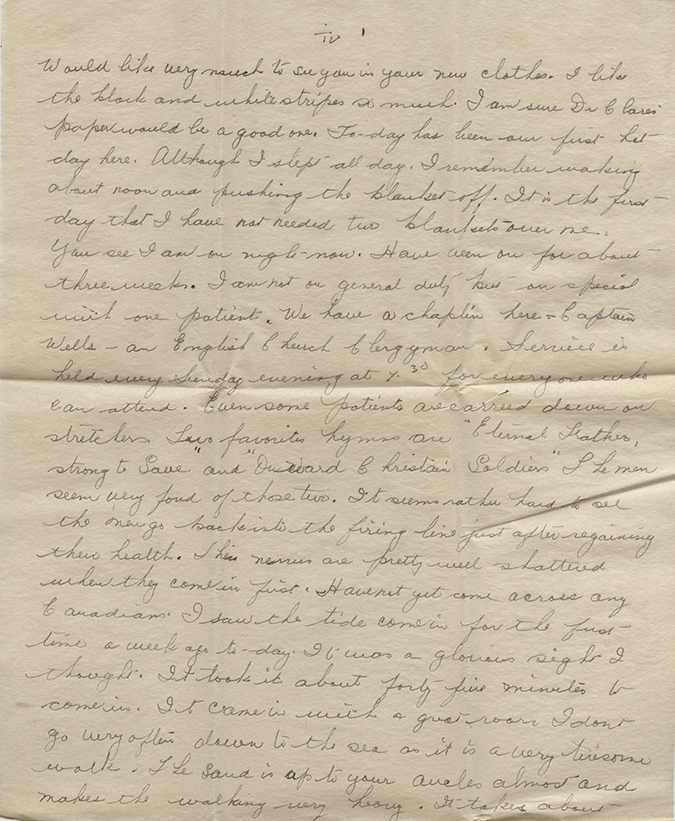 iv 1
Would like very much to see you in your new clothes. I like
the black and white stripes so much. I am sure Dr Clares
paper would be a good one. To-day has been our first hot
day here. Although I slept all day. I remember waking
about noon and pushing the blanket off. It is the first
day that I have not needed two blankets over me.
You see I am on night now. Have been on for about
three weeks. I am not on general duty but on special
with one patient. We have a chaplin here = Captain
Wells - an English Church Clergyman. Service is
held every Sunday evening at 7.30 for every one who
can attend. Even some patients are carried down on
stretchers. Two favorites hymns are "Eternal Father,
strong to Save" and "Onward Christain Soldiers" The men
seem very fond of those two. It seems rather hard to see
the men go back into the firing line just after regaining
their health. Their nerves are pretty well shattered
when they come in first. Have not yet come across any
Canadians. I saw the tide come in for the first
time a week ago to-day. It was a glorious sight I
thought. It took it about forty five minutes to
come in. It came in with a great roar. I dont
go very often down to the sea as it is a very tiresome
walk. The Sand is up to your ancles almost and
makes the walking very heavy. It takes about